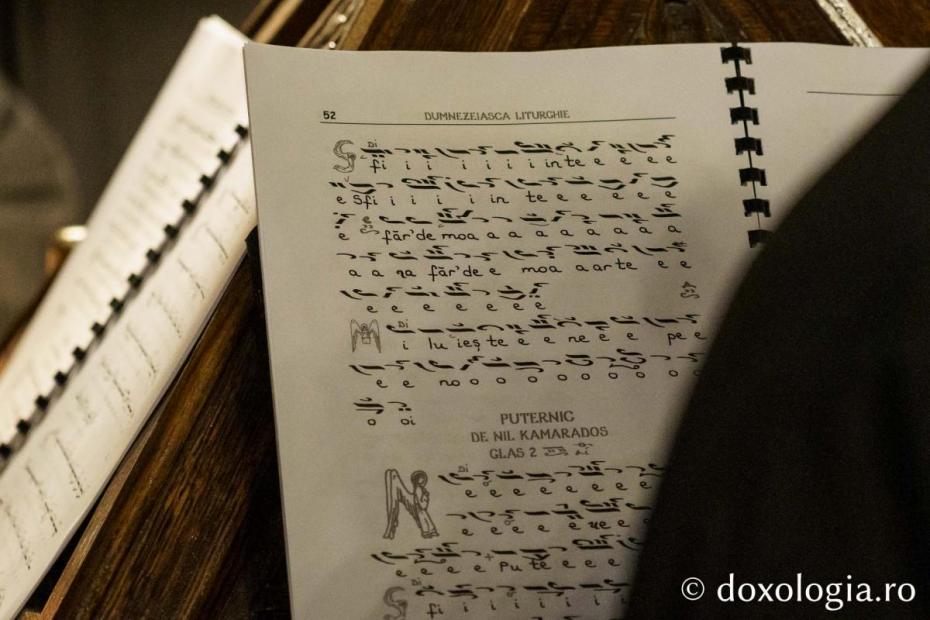 52 DUMNEZEIASCA LITURGHIE
Di
S fi i i i i i i in te e e e e
e Sfi i i i i in te e e e e e
e făr'de moa a a a a a a a a
a a ra făr'de e moa a ar te e e
e e e e e e e e
Di
M i lu ieș te e e ne e e pe e
e e no o o o o o o o o
o oi
PUTERNIC
DE NIL KAMARADOS
GLAS 2
Di
e e e e e e e e
e e e e e
e e e e Pu te e e e
Di
S fi i i i i i i
© doxologia.ro